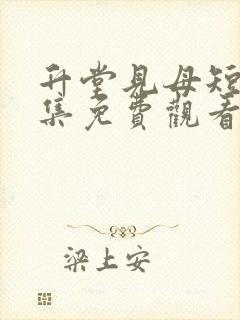 升堂見母短
集免費觀看
梁上安